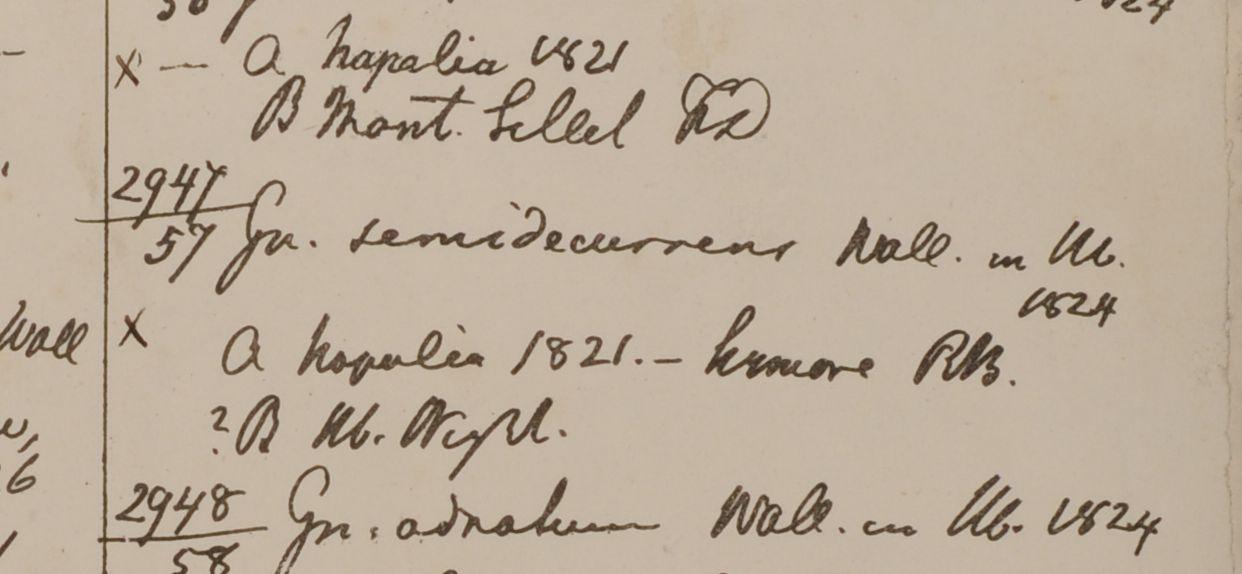 x — a Napalia 1821
B Mont. Sillet FD
2947
57 Gn. semidecurrens Wall. in Hb.
1824
Wall
x a Napalia 1821. – Kumaon RB.
? B Hb. Wight.
6
2948
58 Gn. adnatum Wall. in Hb. 1824